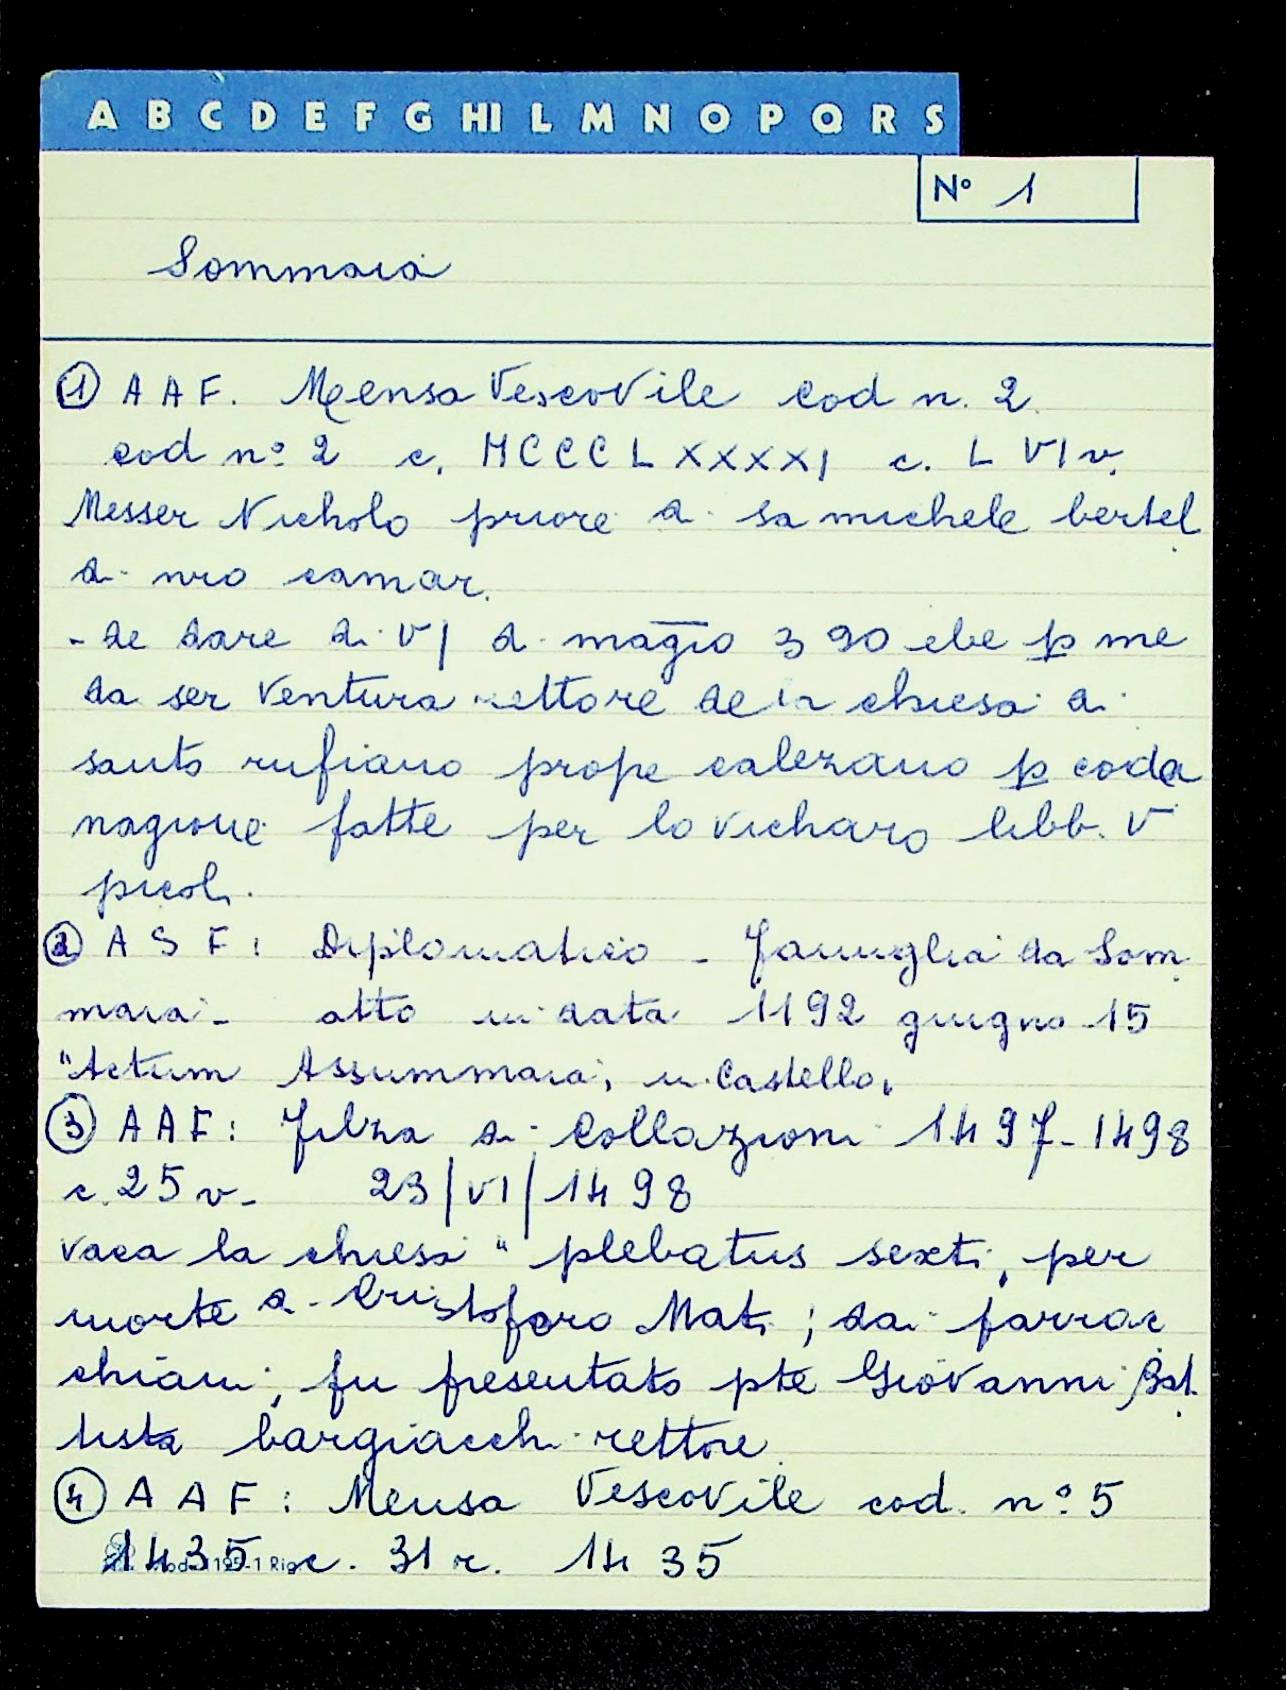 A B C D E F G HI L M N O P Q R S
N° 1
Sommaia
① A A F. Mensa Vescovile cod n. 2.
cod n° 2 c. MCCCLXXXXI c. L VI v.
Messer Nicholo priore di sa michele bertel
di nro camar.
- de dare di VI di magio 390 ebe p me
da ser Ventura rettore de la chiesa di
santo rufiano prope calezano p coda
nagione fatte per lo vicharo libb. V
picoli.
② A S F: Diplomatico - Famiglia da Som
maia - atto in data 1192 giugno 15
"Actum Assummaia, in Castello"
③ A A F: Filza di Collazioni 1497-1498
c. 25 v - 23/VI/1498
vaca la chiesa " plebatus sexti, per
morte di Cristoforo Mati; dai parroc
chiani, fu presentato pte Giovanni Bat
tista bargiacchi rettore.
④ A A F: Mensa Vescovile cod. n° 5
1435 c. 31 r. 1435